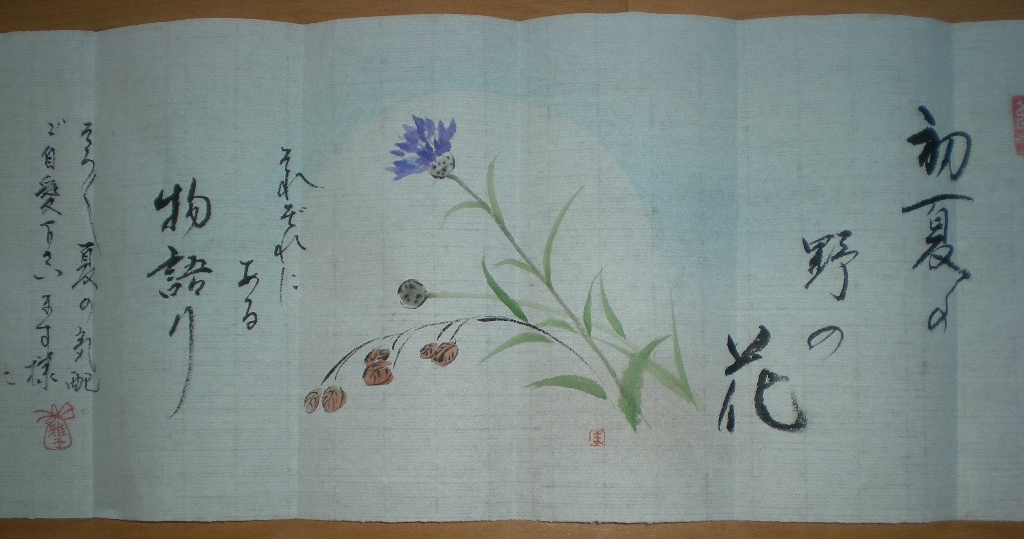 初夏の
野の
花
それぞれに
ある
物語り
そろそろ夏の気配
ご自愛下さいます様に